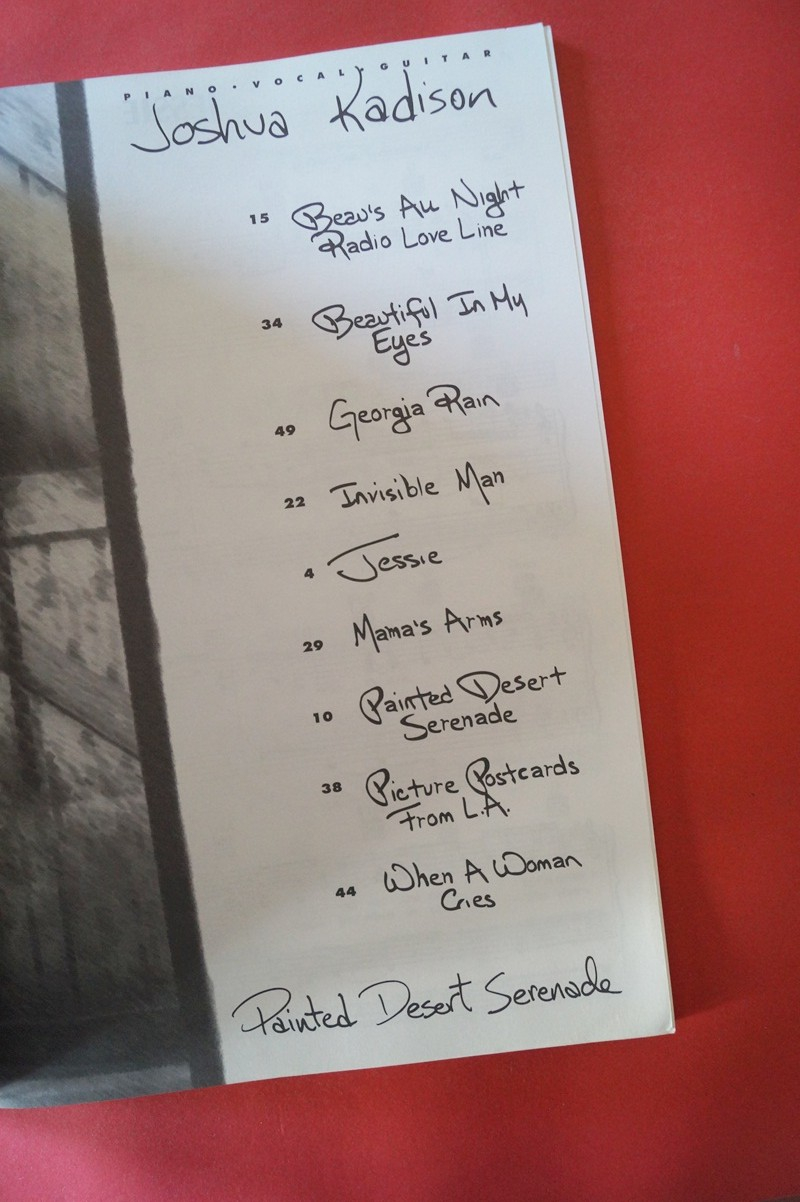 PIANO · VOCAL · GUITAR
Joshua Kadison
15 Beau's All Night
Radio Love Line
34 Beautiful In My
Eyes
49 Georgia Rain
22 Invisible Man
4 Jessie
29 Mama's Arms
10 Painted Desert
Serenade
38 Picture Postcards
From L.A.
44 When A Woman
Cries
Painted Desert Serenade